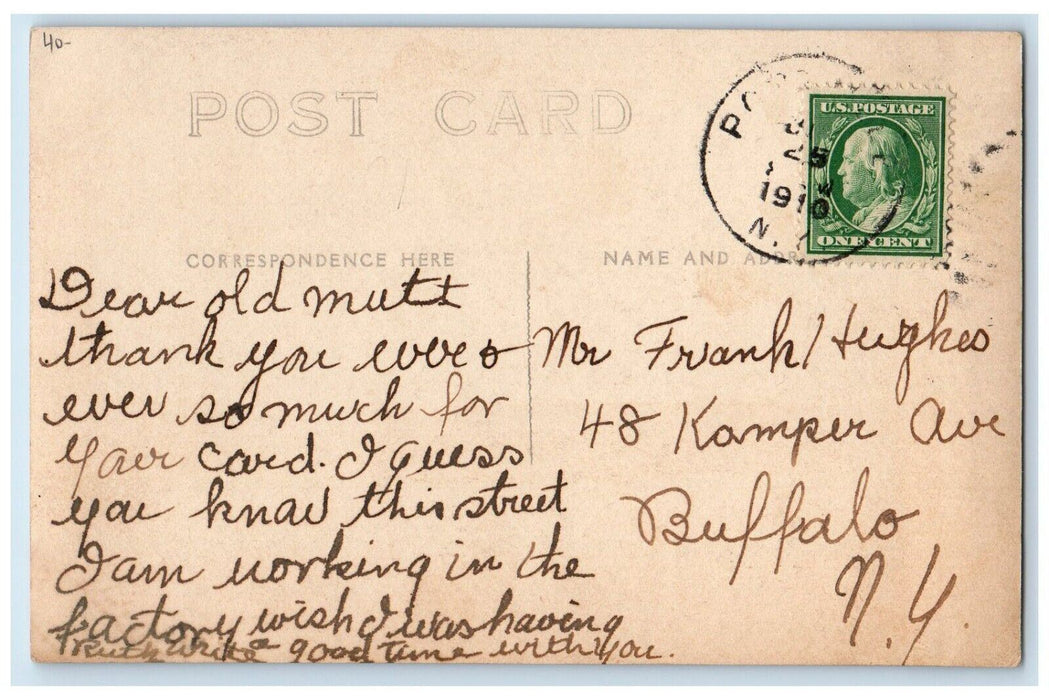 40-
POST CARD
25
1910
N.
U.S. POSTAGE
ONE CENT
CORRESPONDENCE HERE
NAME AND
Dear old mutt
thank you ever &
ever so much for
your card. I guess
you know this street
I am working in the
factory wish I was having
a good time with you.
Ruth White
Mr Frank Hughes
48 Kamper Ave
Buffalo
N.Y.